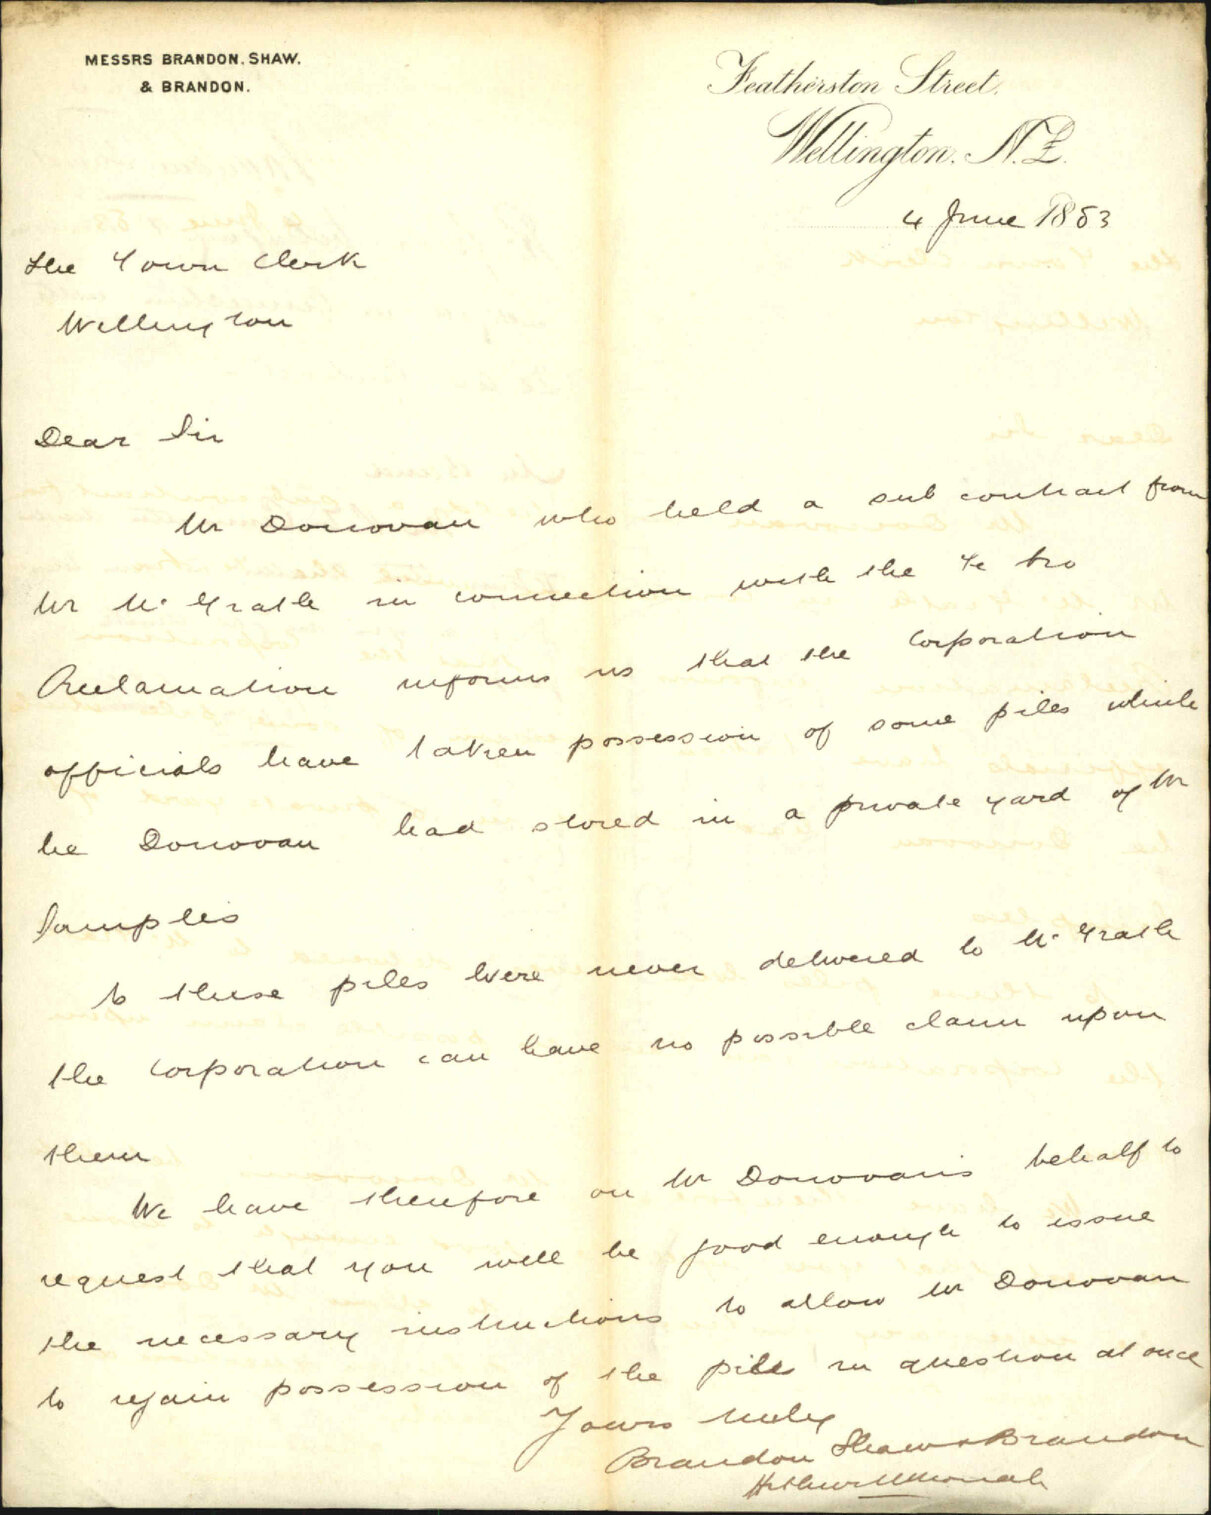 MESSRS BRANDON. SHAW.
& BRANDON.
Featherston Street.
Wellington. N.Z.
4 June 1883
The Town Clerk
Wellington
Dear Sir
Mr Donovan who held a sub contract from
Mr McGrath in connection with the Te Aro
Reclamation informs us that the Corporation
officials have taken possession of some piles which
he Donovan had stored in a private yard of Mr
Samples
As these piles were never delivered to McGrath
the Corporation can have no possible claim upon
them
We have therefore on Mr Donovan's behalf to
request that you will be good enough to issue
the necessary instructions to allow Mr Donovan
to regain possession of the piles in question at once
Yours truly
Brandon Shaw & Brandon